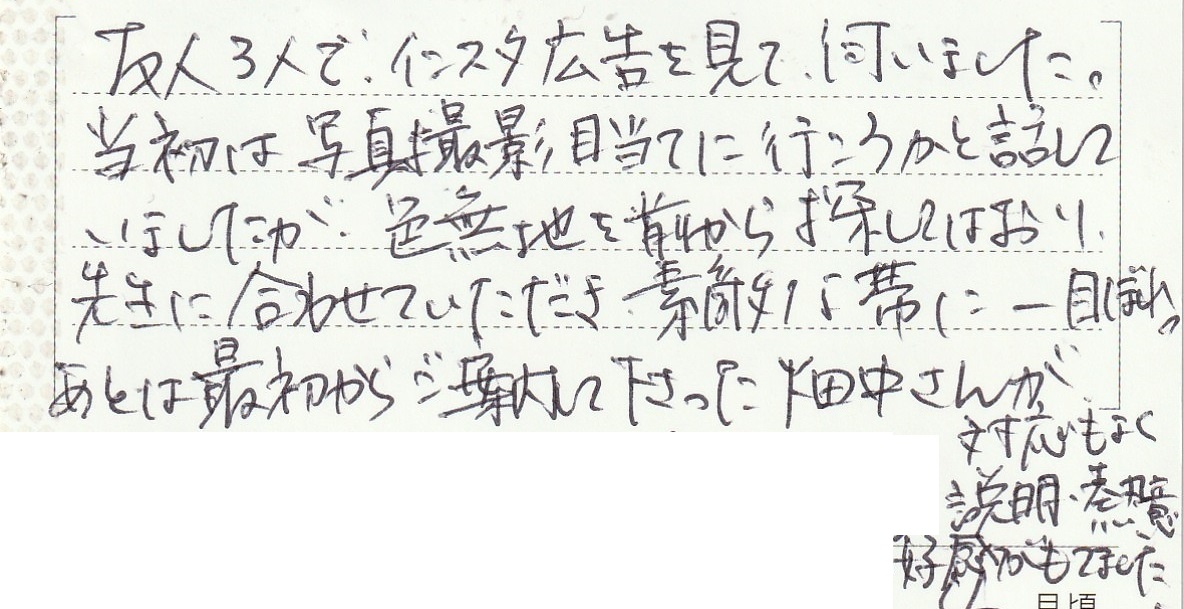 友人3人で、インスタ広告を見て、伺いました。
当初は写真撮影目当てに行こうかと話して
いましたが、色無地を前から探してはおり、
先生に合わせていただき、素敵な帯に一目ぼれ。
あとは最初からご案内して下さった畑中さんが、
対応もよく
説明・熱意
好感がもてました
日頃